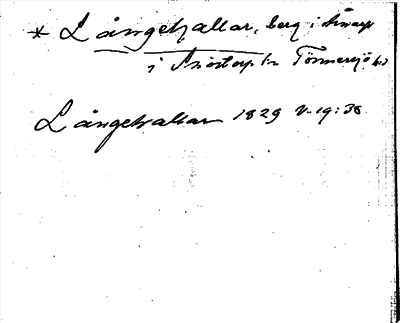 * Långehallar, berg i
i Snöstorp sn Tönnersjö hd
Långehallar 1829 V. 19:38